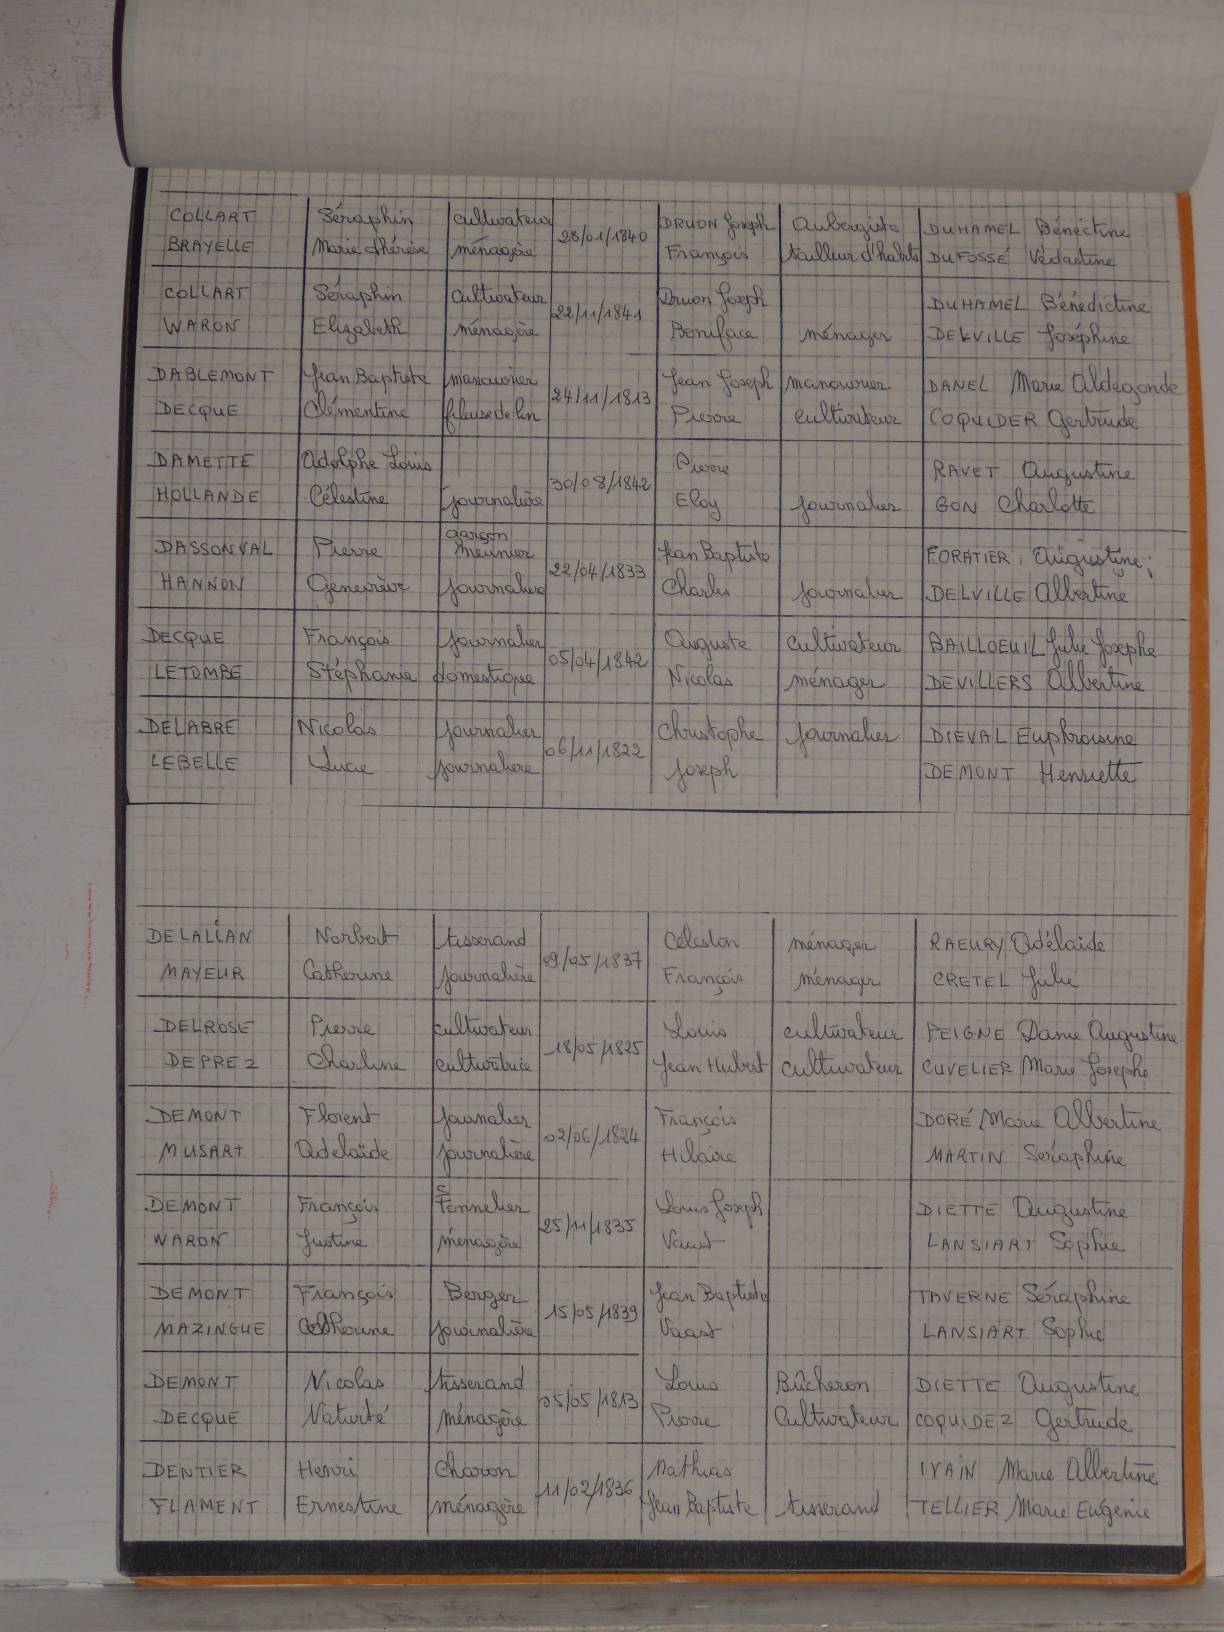 COLLART Séraphin cultivateur 28/01/1840 DRUON Joseph Aubergiste DUHAMEL Bénéctine
BRAYELLE Marie thérèse ménagère François tailleur d'habits DUFOSSÉ Védastine
COLLART Séraphin cultivateur 22/11/1841 Druon Joseph DUHAMEL Bénédictine
WARON Elizabeth ménagère Boniface ménager DELVILLE Joséphine
DABLEMONT Jean Baptiste manouvrier 24/11/1813 Jean Joseph manouvrier DANEL Marie Aldégonde
DECQUE Clémentine fileuse de lin Pierre cultivateur COQUIDER Gertrude
DAMETTE Adolphe Louis 30/08/1842 Pierre RAVET Augustine
HOLLANDE Célestine journalière Eloy journalier GON Charlotte
DASSONVAL Pierre garçon meunier 22/04/1833 Jean Baptiste FORATIER Augustine
HANNON Geneviève journalière Charles journalier DELVILLE Albertine
DECQUE François journalier 05/04/1842 Auguste cultivateur BAILLOEUIL Julie Josephe
LETOMBE Stéphanie domestique Nicolas ménager DEVILLERS Albertine
DELABRE Nicolas journalier 06/11/1822 Christophe journalier DIEVAL Euphroisine
LEBELLE Lucie journalière Joseph DEMONT Henriette
DELALLAN Norbert tisserand 09/05/1837 Céleston ménager RAEURY Adélaïde
MAYEUR Catherine journalière François ménager CRETEL Julie
DELROSE Pierre cultivateur 18/05/1825 Louis cultivateur PEIGNE Dame Augustine
DEPREZ Charline cultivatrice Jean Hubert cultivateur CUVELIER Marie Josephe
DEMONT Florent journalier 02/06/1824 François DORÉ Marie Albertine
MUSART Adelaïde journalière Hilaire MARTIN Séraphine
DEMONT François Tonnelier 25/11/1835 Louis Joseph DIETTE Augustine
WARON Justine ménagère Vaast LANSIART Sophie
DEMONT François Berger 15/05/1839 Jean Baptiste TAVERNE Séraphine
MAZINGUE Catherine journalière Vaast LANSIART Sophie
DEMONT Nicolas tisserand 05/05/1813 Louis Bûcheron DIETTE Augustine
DECQUE Nativité ménagère Pierre Cultivateur COQUIDEZ Gertrude
DENTIER Henri Charon 11/02/1836 Mathias IVAIN Marie Albertine
FLAMENT Ernestine ménagère Jean Baptiste tisserand TELLIER Marie Eugénie